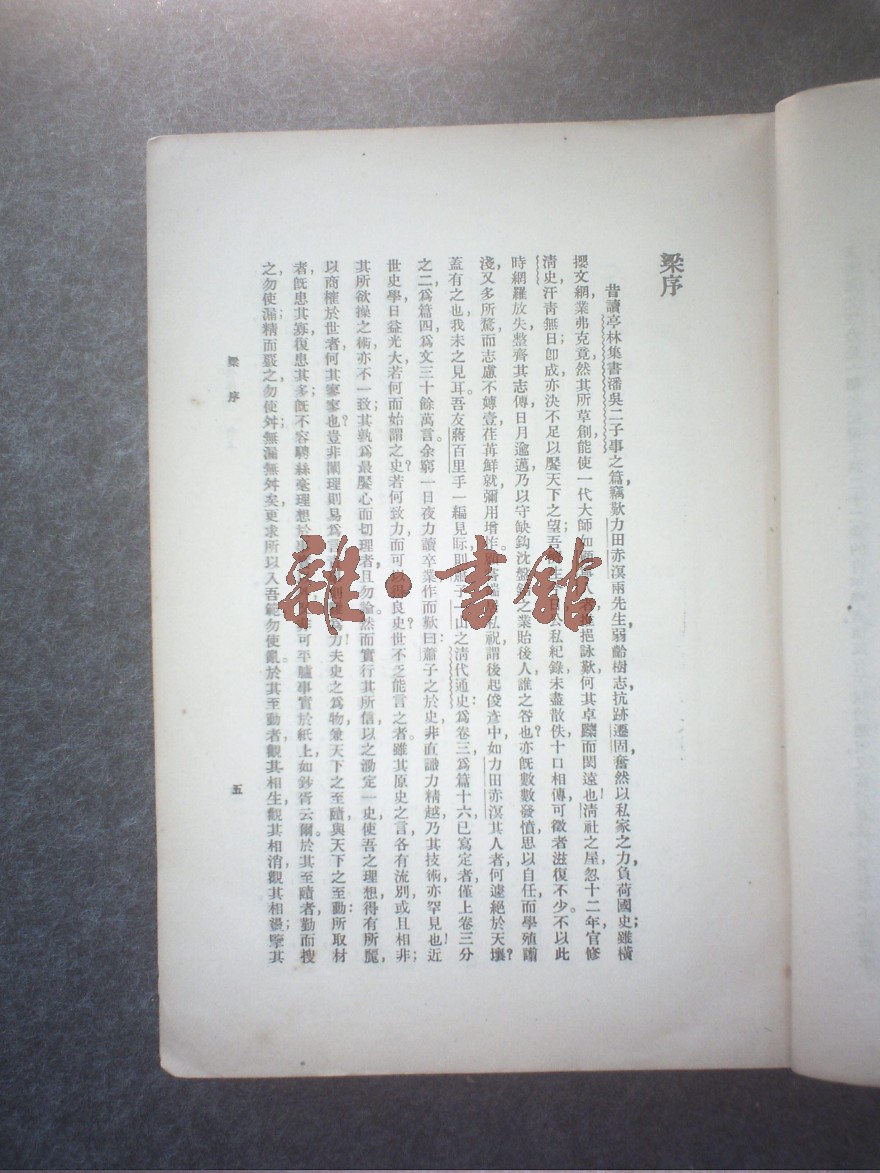 梁序
昔讀亭林集書潘吳二子事之篇，竊歎力田赤溟兩先生弱齡樹志抗跡遷固，奮然以私家之力，負荷國史；雖橫
攖文網，業弗克竟，然其所草創，能使一代大師如
挹詠歎，何其卓躒而閎遠也！淸社之屋，忽十二年，官修
淸史，汗靑無日，卽成亦決不足以饜天下之望；吾
公私紀錄，未盡散佚，十口相傳，可徵者滋復不少。不以此
時網羅放失，整齊其志傳，日月逾邁，乃以守缺鈎沈盤錯之業，貽後人，誰之咎也？亦旣數數發憤，思以自任，而學殖譾
淺，又多所騖，而志慮不嫥壹，荏苒鮮就，彌用增怍。
私祝，謂後起俊彥中，如力田赤溟其人者，何遽絕於天壤？
蓋有之也，我未之見耳。吾友蔣百里手一編見眎，則蕭子一山之淸代通史：爲卷三，爲篇十六，已寫定者僅上卷三分
之二，爲篇四，爲文三十餘萬言。余窮一日夜力讀卒業，作而歎曰：蕭子之於史，非直識力精越，乃其技術亦罕見也！近
世史學日益光大，若何而始謂之史？若何致力而可以得良史？世不乏能言之者。雖其原史之言，各有流別，或且相非；
其所欲操之術，亦不一致；其孰爲最饜心而切理者，且勿論。然而實行其所信，以之泐定一史，使吾之理想得有所麗，
以商榷於世者，何其寥寥也？豈非闡理則易爲言，
力！夫史之爲物，兼天下之至賾與天下之至動：所取材
者，旣患其寡，復患其多；旣不容騁絲毫理想於事
可平臚事實於紙上，如鈔胥云爾。於其至賾者，勤而搜
之，勿使漏；精而嚴之，勿使舛；無漏無舛矣，更求所以入吾範，勿使亂。於其至動者，觀其相生，觀其相消，觀其相盪；鑒其
梁序
五
雜·書館